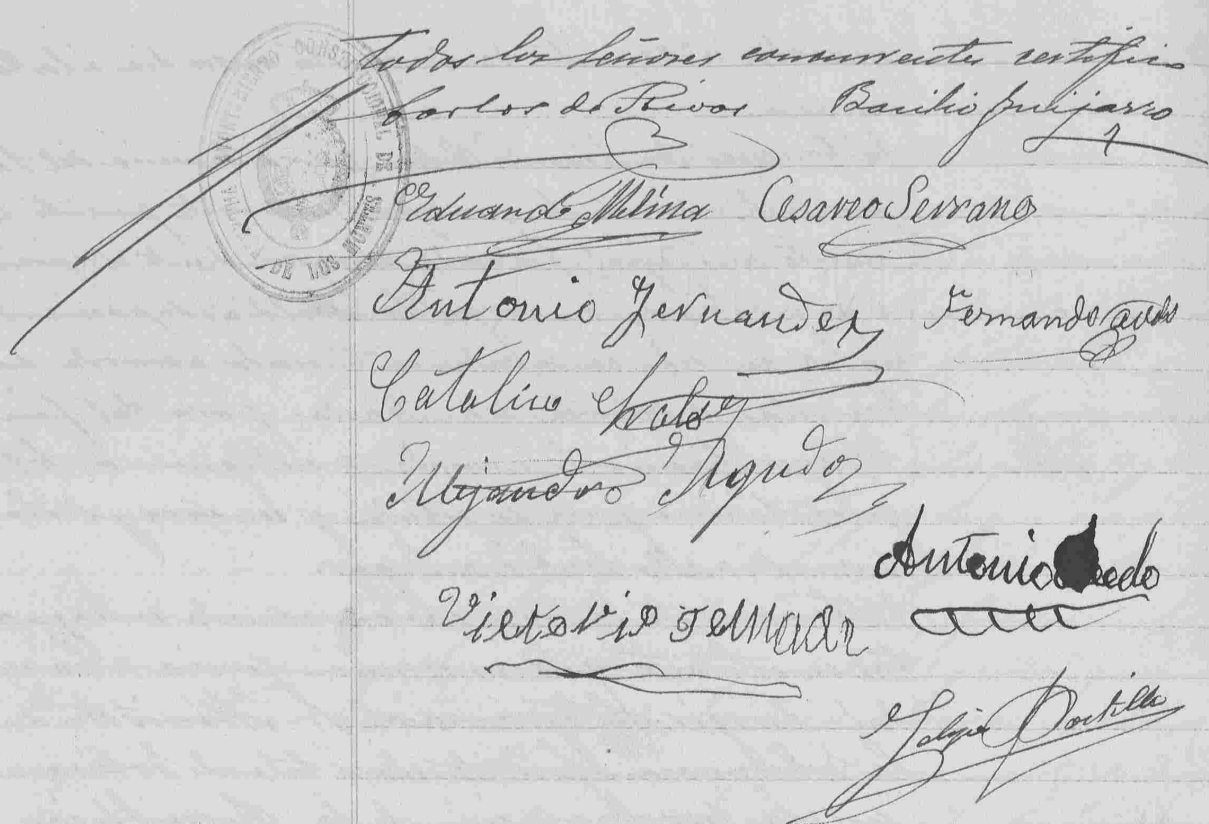 todos los Señores concurrentes certifico
Carlos de Rivas Basilio Guijarro
Eduardo Molina Cesareo Serrano
Antonio Fernandez Fernando
Catalino
Alejandro Agudo
Antonio
Victorio
Portillo